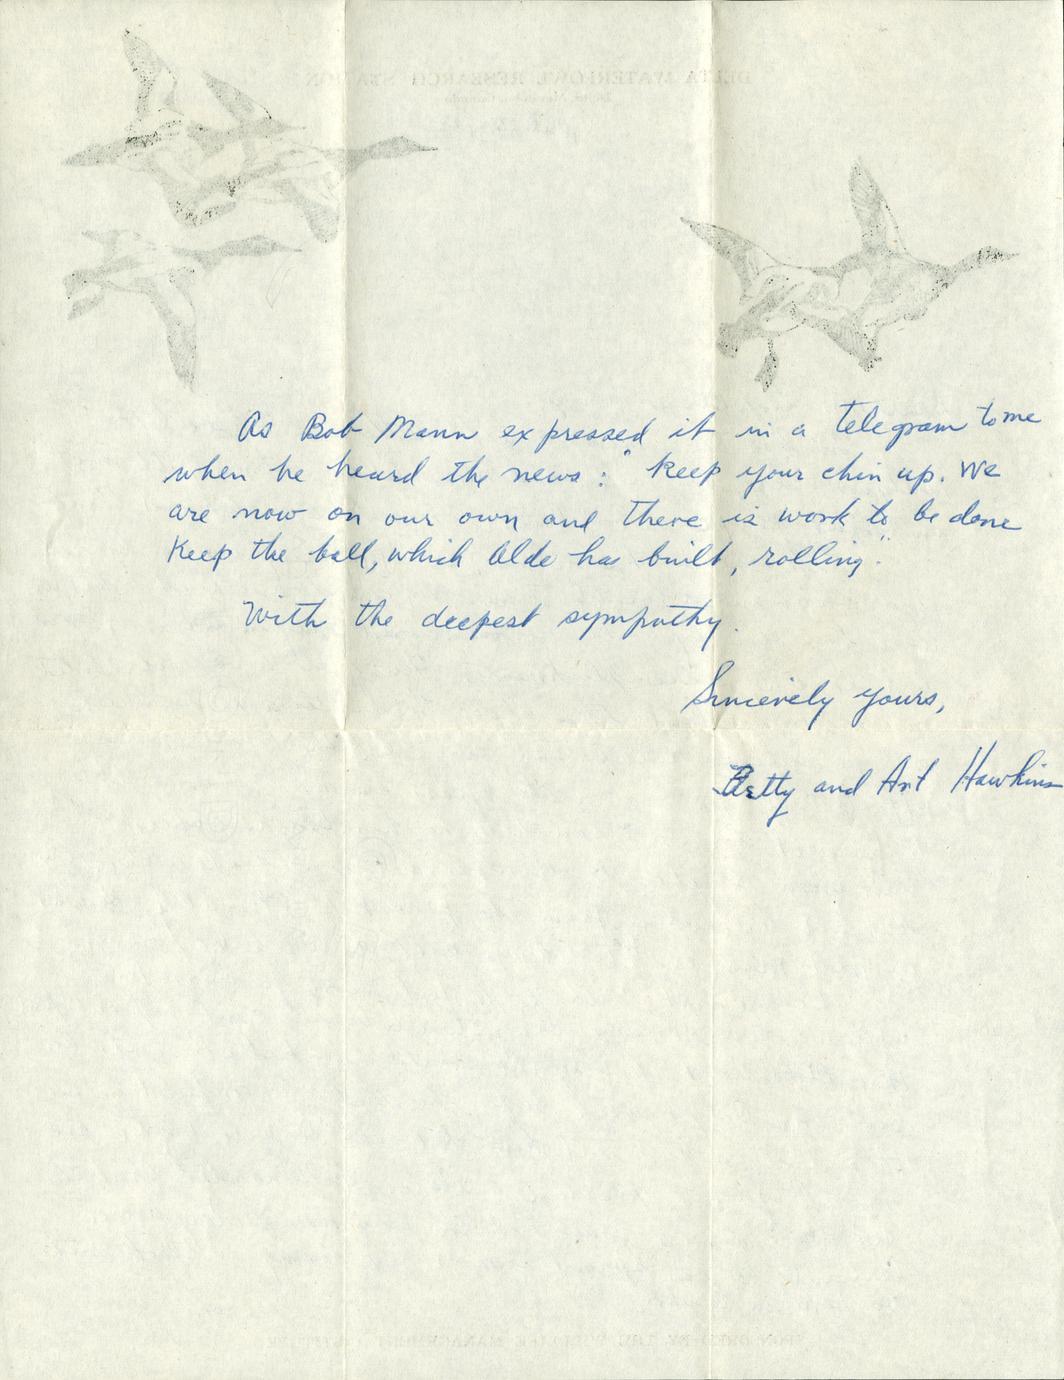 DELTA WATERFOWL RESEARCH STATION
As Bob Mann expressed it in a telegram to me
when he heard the news: "Keep your chin up. We
are now on our own and there is work to be done
Keep the ball, which Aldo has built, rolling."
With the deepest sympathy.
Sincerely yours,
Betty and Art Hawkins